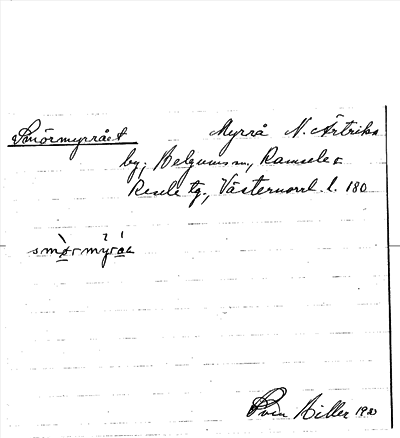 Smörmyrrået Myrrå N. Ärtriks
by; Helgums sn, Ramsele o
Resele tg., Västernorrl. l. 180
smørmyråe
Sven Hiller 1920